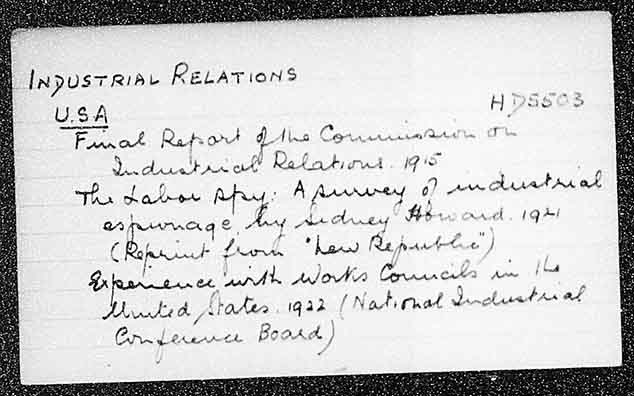 INDUSTRIAL RELATIONS
U.S.A
HD5503
Final Report of the Commission on
Industrial Relations. 1915
The Labor Spy: A survey of industrial
espionage, by Sidney Howard. 1921
(Reprint from "New Republic")
Experience with Works Councils in the
United States. 1922 (National Industrial
Conference Board)